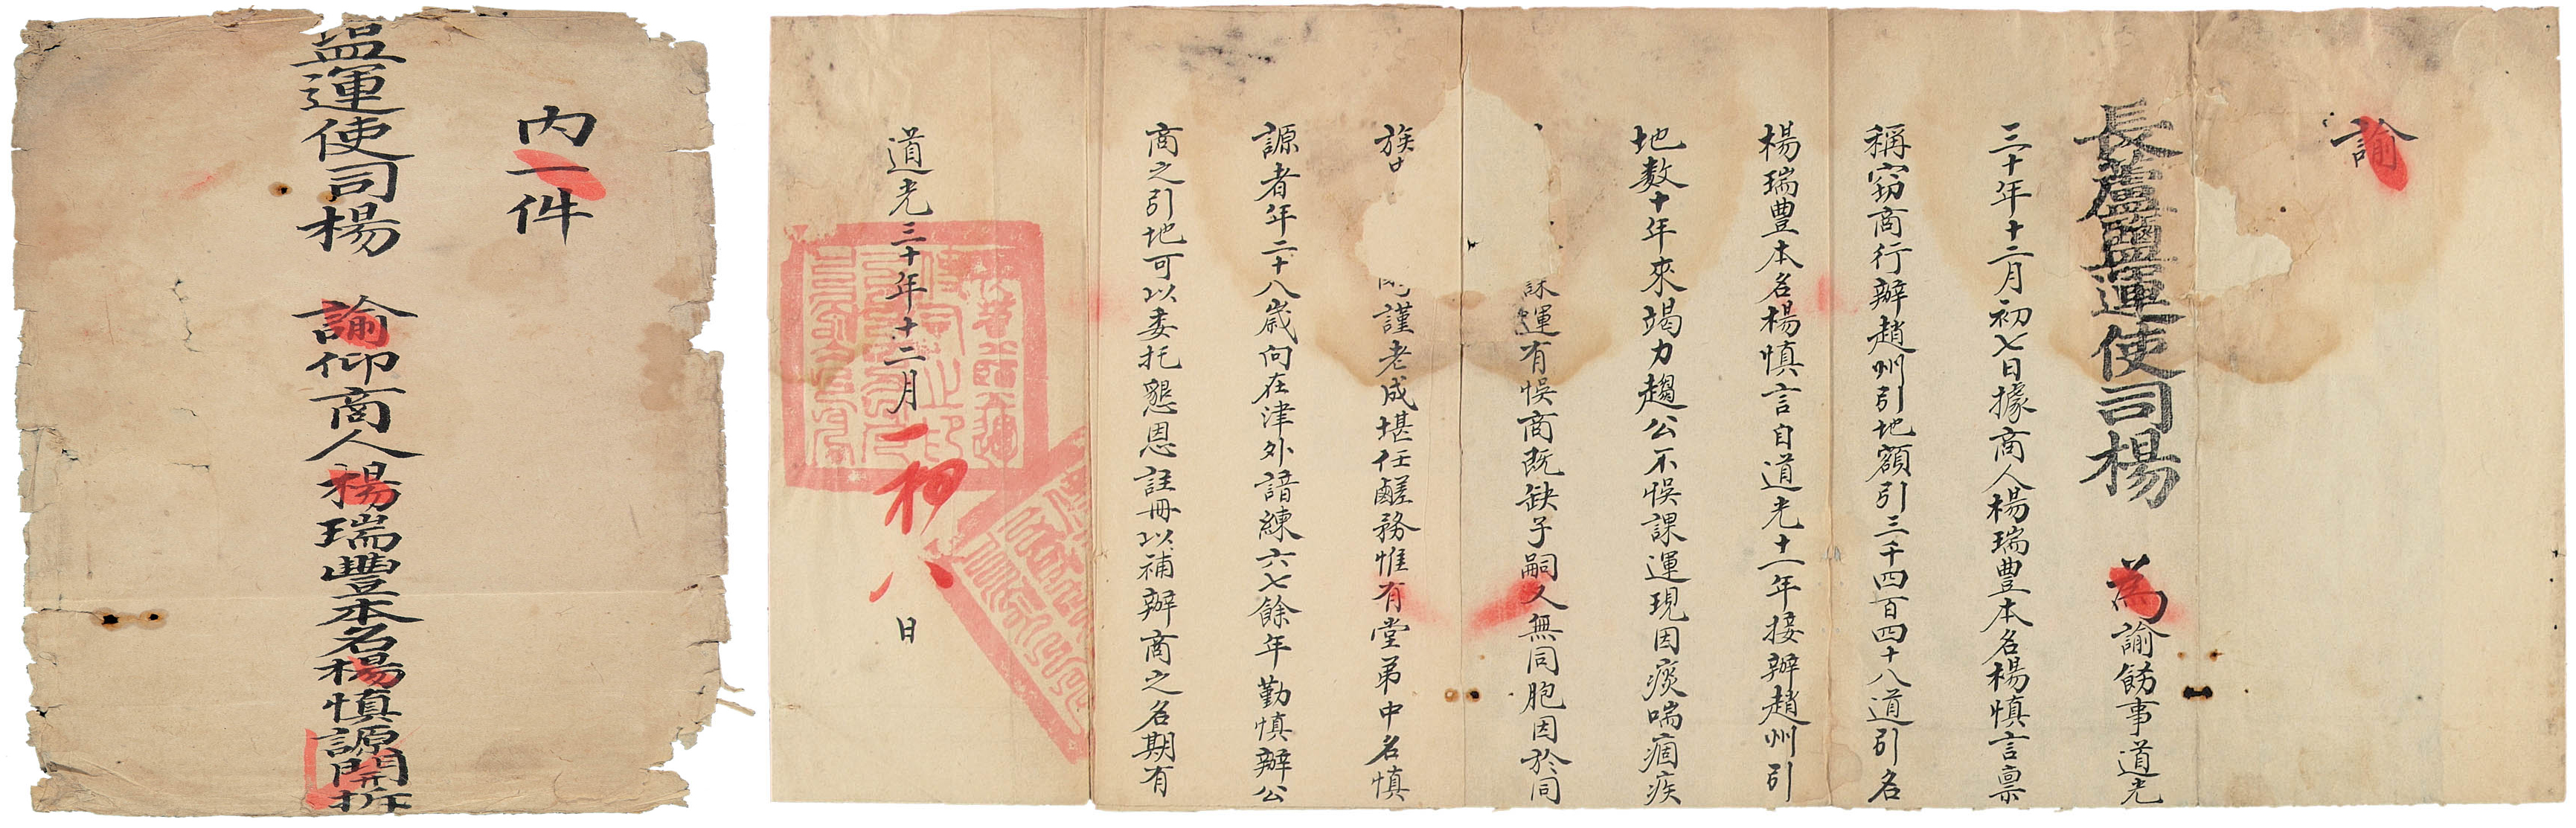 內一件
鹽運使司楊　諭仰商人楊瑞豐本名楊慎源開拆
諭
長蘆鹽運使司楊　為諭飭事道光
三十年十二月初七日據商人楊瑞豊本名楊慎言禀
稱窃商行辦趙州引地額引三千四百四十八道引名
楊瑞豊本名楊慎言自道光十一年接辦趙州引
地数十年來竭力趨公不悮課運現因痰喘痼疾
運有悮商既缺子嗣又無同胞因於同
族中
謹老成堪任鹺務惟有堂弟中名慎
源者年二十八歲向在津外諳練六七餘年勤慎辦公
商之引地可以委托懇恩註冊以補辦商之名期有
道光三十年十二月
初八
日